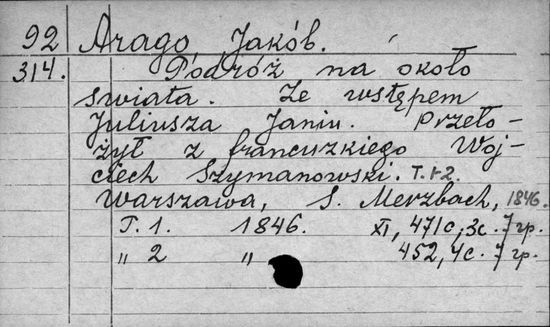 92 Arago Jakób.
314. Podróż na około
świata. Ze wstępem
Juliusza Janin. Przeło-
żył z francuzkiego Woj-
ciech Szymanowski. T. 1-2.
Warszawa, S. Merzbach, 1846.
T. 1. 1846. XI, 471c, 3c. 7 gr.
" 2 " 452, 4c. 7 gr.